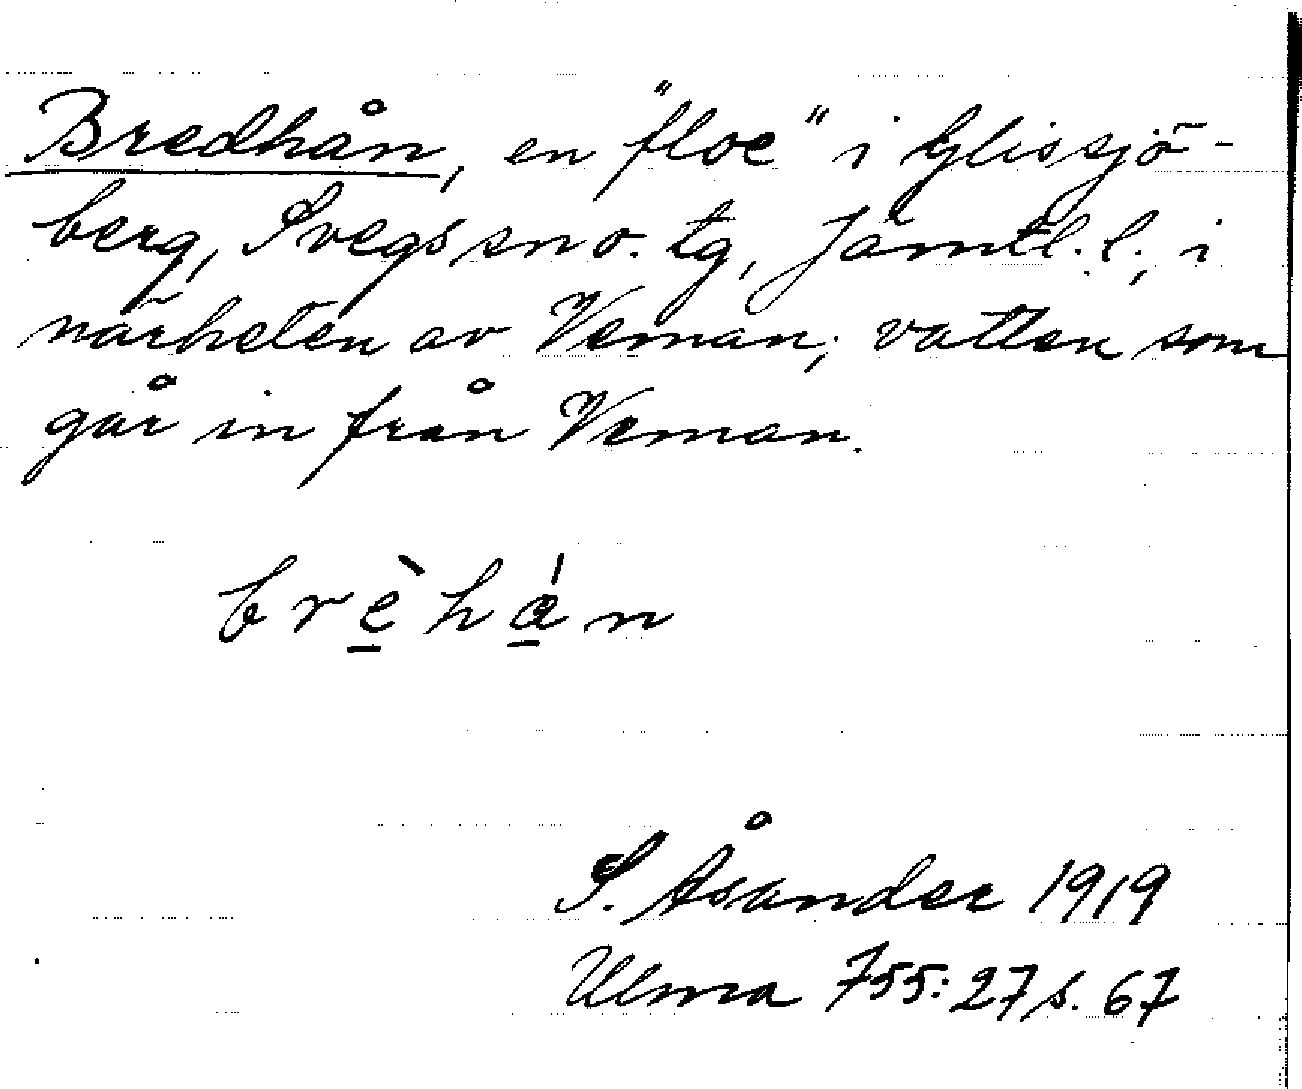 Bredhån, en "floe" i Glissjö-
berg, Svegs sn o. tg, Jämtl. l.; i
närheten av Veman; vatten som
går in från Veman.
brèhán
S. Åsander 1919
Ulma 755:27 s. 67